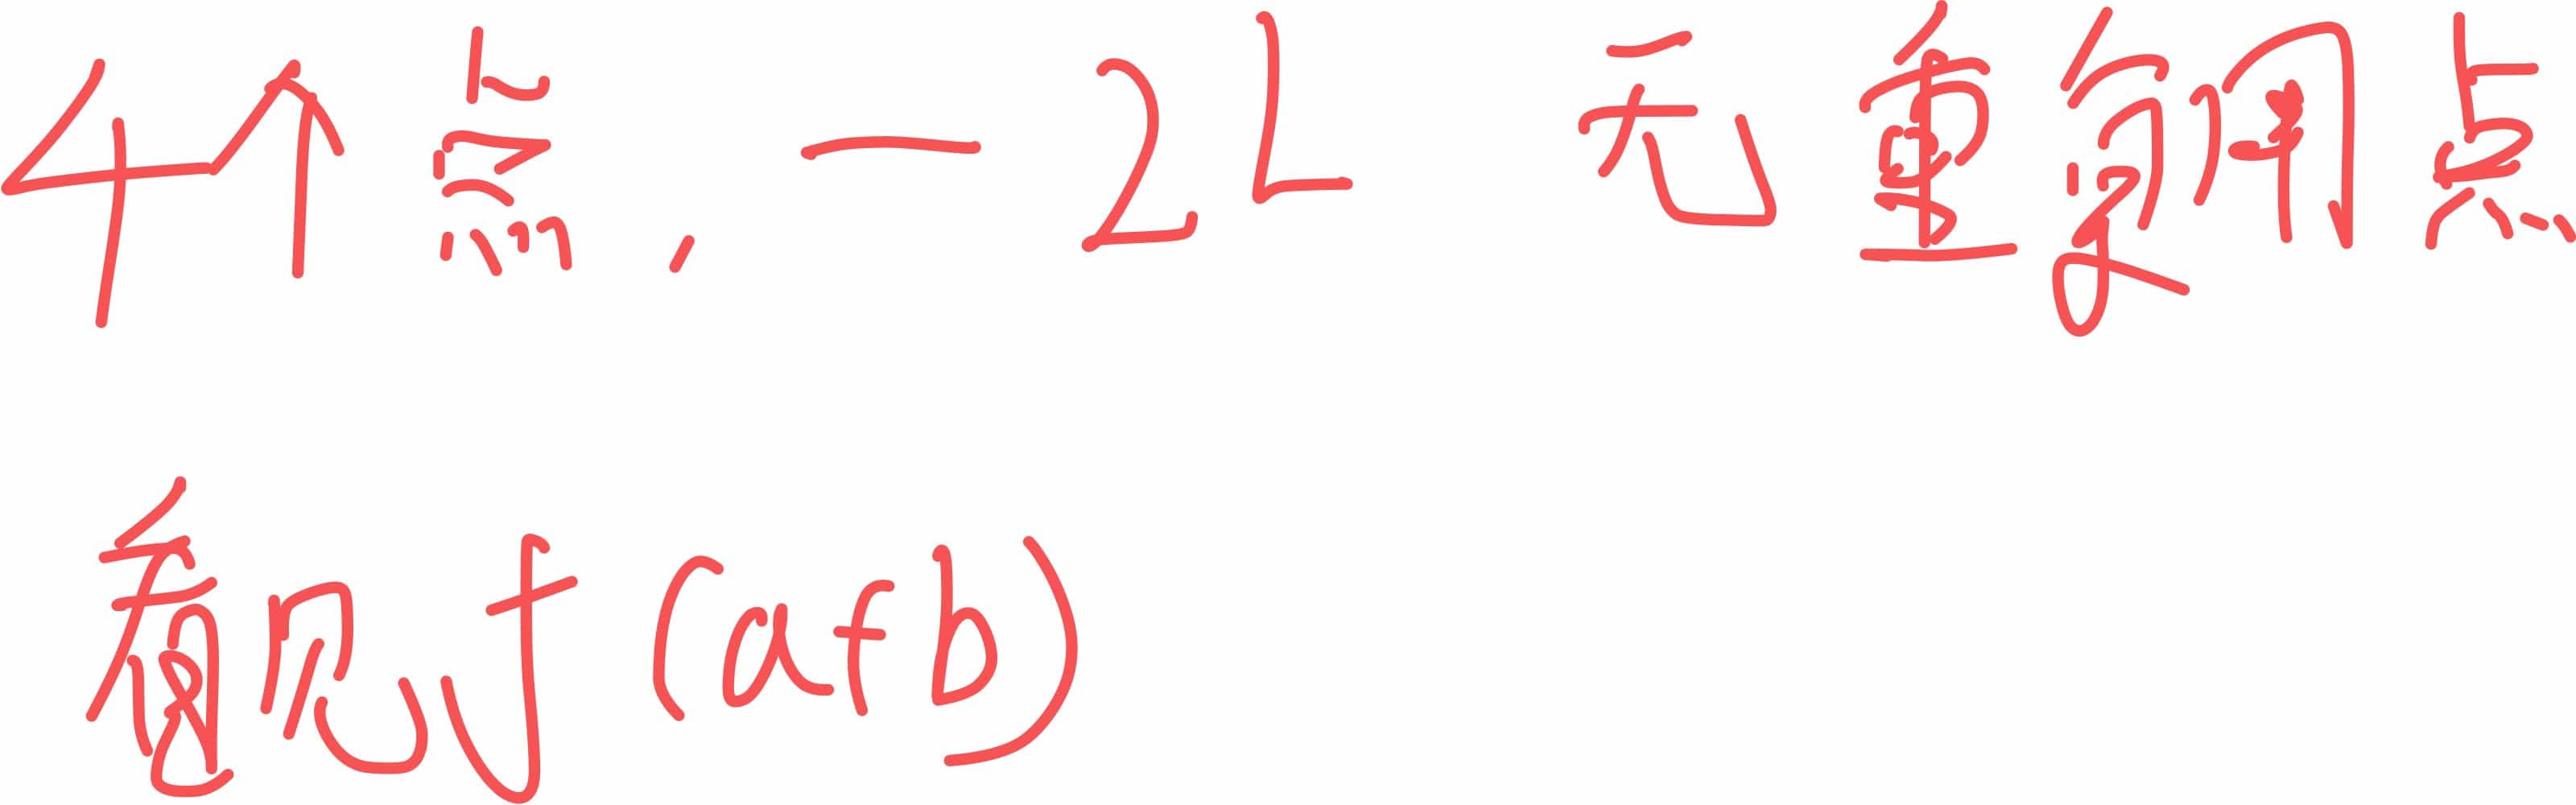 4个点,一2L 无重复用点
看见f(afb)